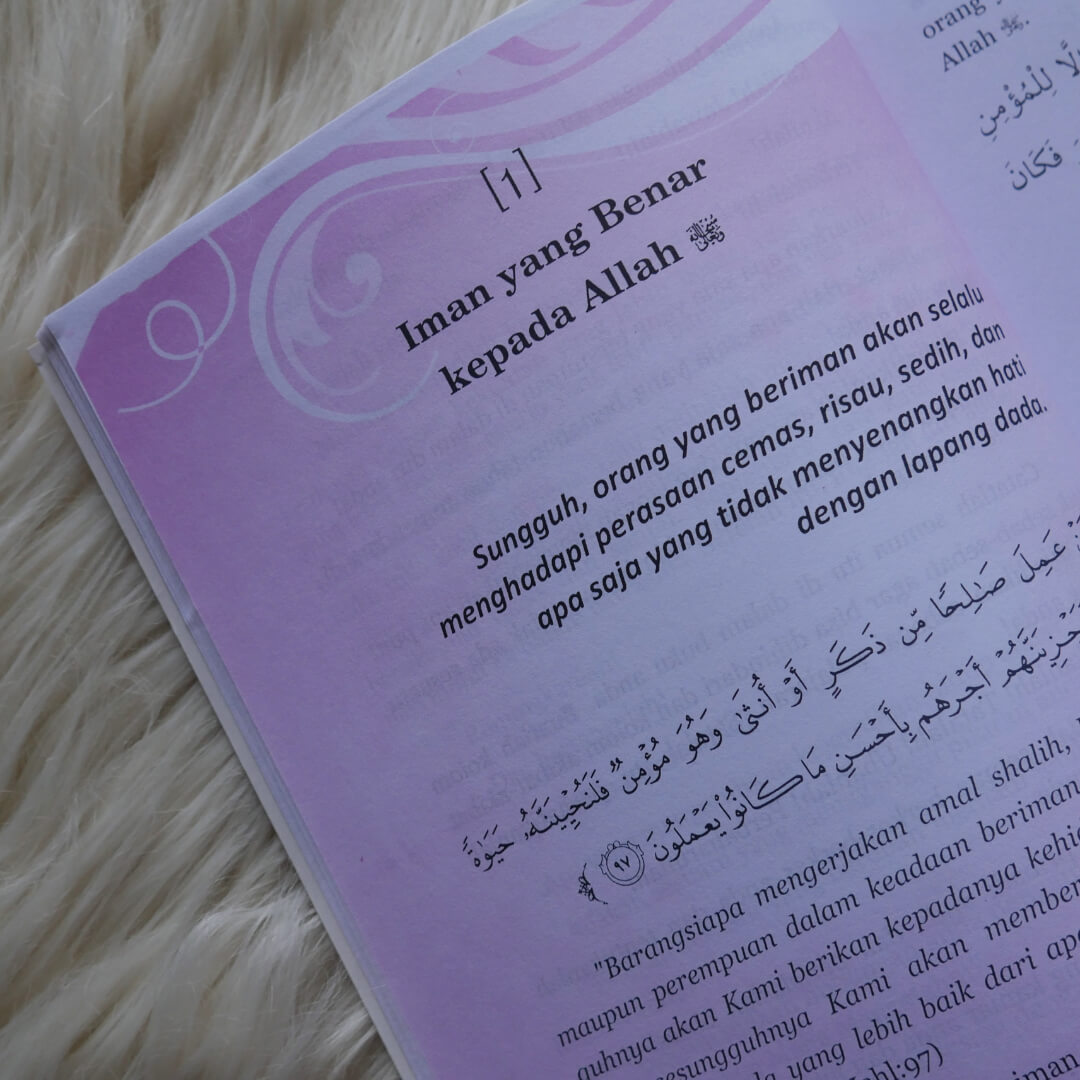 [1]
Iman yang Benar
kepada Allah ﷾
Sungguh, orang yang beriman akan selalu
menghadapi perasaan cemas, risau, sedih, dan
apa saja yang tidak menyenangkan hati
dengan lapang dada.
عَمِلَ صَٰلِحًا مِّن ذَكَرٍ أَوْ أُنثَىٰ وَهُوَ مُؤْمِنٌ فَلَنُحْيِيَنَّهُۥ حَيَوٰةً
أَجْرَهُم بِأَحْسَنِ مَا كَانُوا۟ يَعْمَلُونَ ٩٧
"Barangsiapa mengerjakan amal shalih,
maupun perempuan dalam keadaan beriman
guhnya akan Kami berikan kepadanya
sesungguhnya Kami akan
yang lebih baik dari
:97)
orang
Allah ﷻ.
لِلْمُؤْمِنِ
فَكَانَ